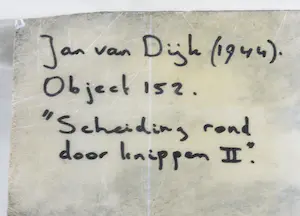 Jan van Dijk (1944).
Object 152.
"Scheiding rond
door knippen II".